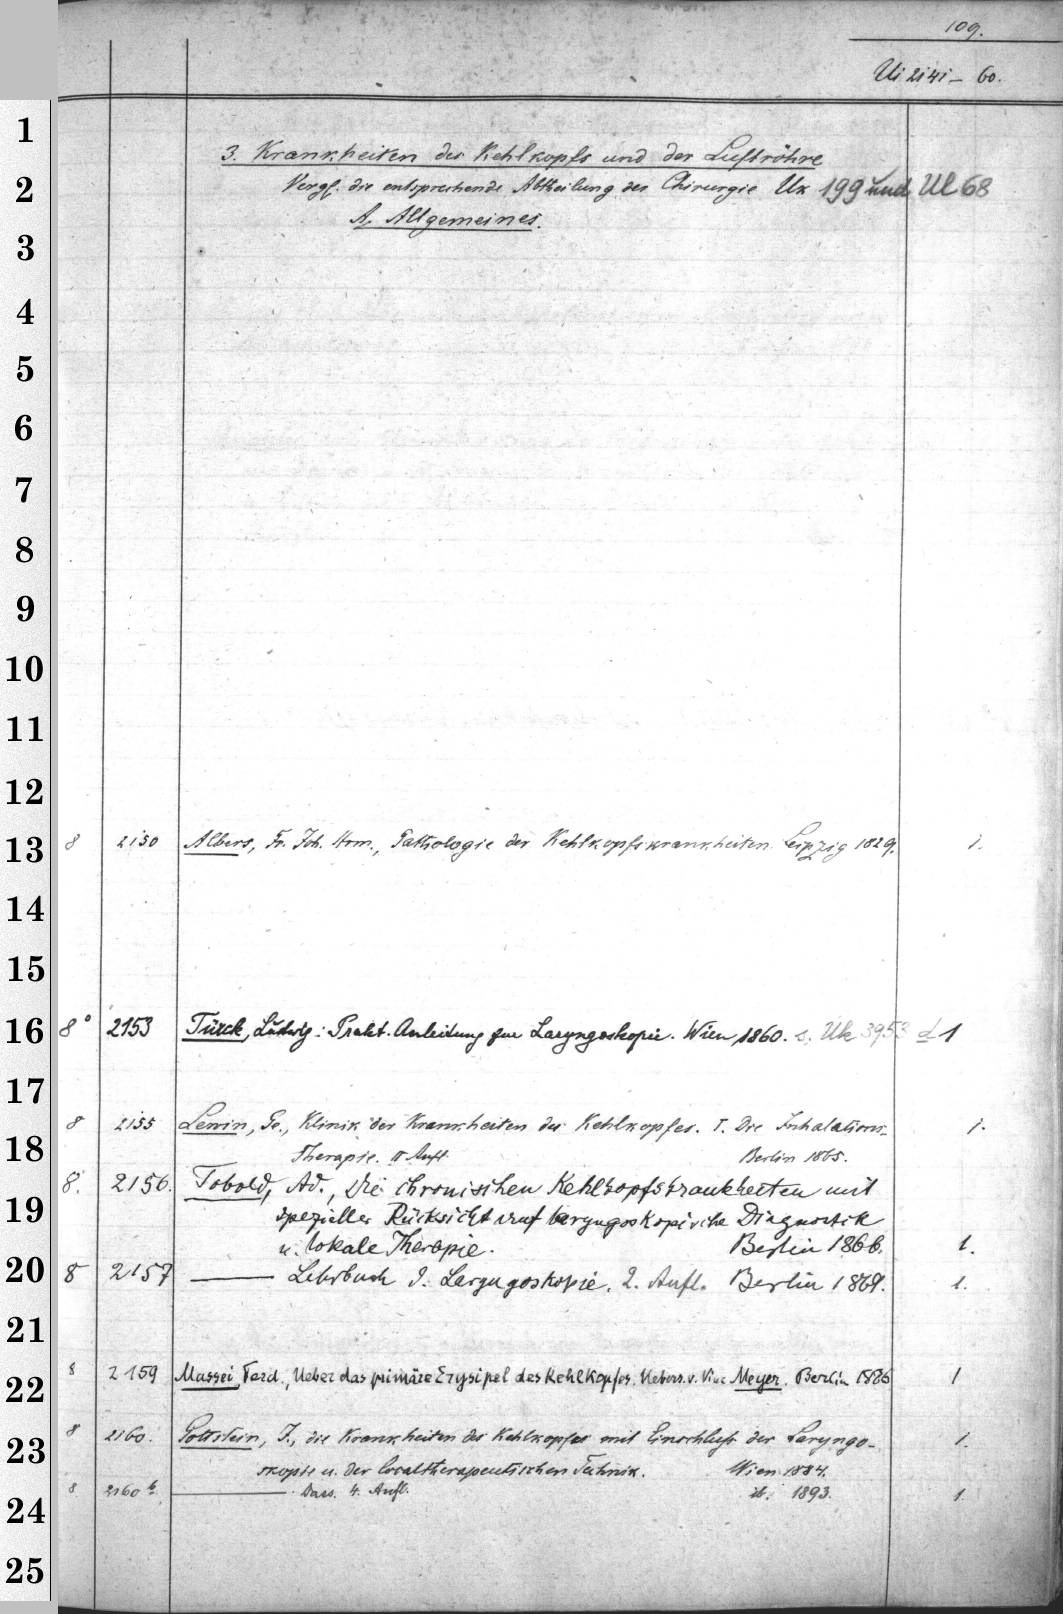 109.
Ui 2141 - 60.
1
3. Krankheiten des Kehlkopfs und der Luftröhre
2
Vergl. die entsprechende Abtheilung der Chirurgie Uk 199 und Ul 68
A. Allgemeines.
3
4
5
6
7
8
9
10
11
12
13
8 2150 Albers, Fr. Joh. Hrm., Pathologie der Kehlkopfskrankheiten. Leipzig 1829. 1.
14
15
16
8° 2153 Türck, Ludwig: Prakt. Anleitung zur Laryngoskopie. Wien 1860. s. Uk 3953 d 1
17
8 2155 Lewin, Go., Klinik der Krankheiten des Kehlkopfes. I. Die Inhalations-
1.
18
Therapie. II Aufl. Berlin 1865.
8. 2156. Tobold, Ad., Die chronischen Kehlkopfskrankheiten mit
19
spezieller Rücksicht auf laryngoskopische Diagnostik
u. lokale Therapie. Berlin 1866. 1.
20
8 2157 ——— Lehrbuch d. Laryngoskopie. 2. Aufl. Berlin 1869. 1.
21
22
8 2159 Massei, Ferd., Ueber das primäre Erysipel des Kehlkopfes. Uebers. v. Meyer. Berlin 1886 1
23
8 2160. Gottstein, J., die Krankheiten des Kehlkopfes mit Einschluß der Laryngo-
1.
skopie u. der localtherapeutischen Technik. Wien 1884.
24
8 2160 b. ——— Dass. 4. Aufl. ib. 1893. 1.
25